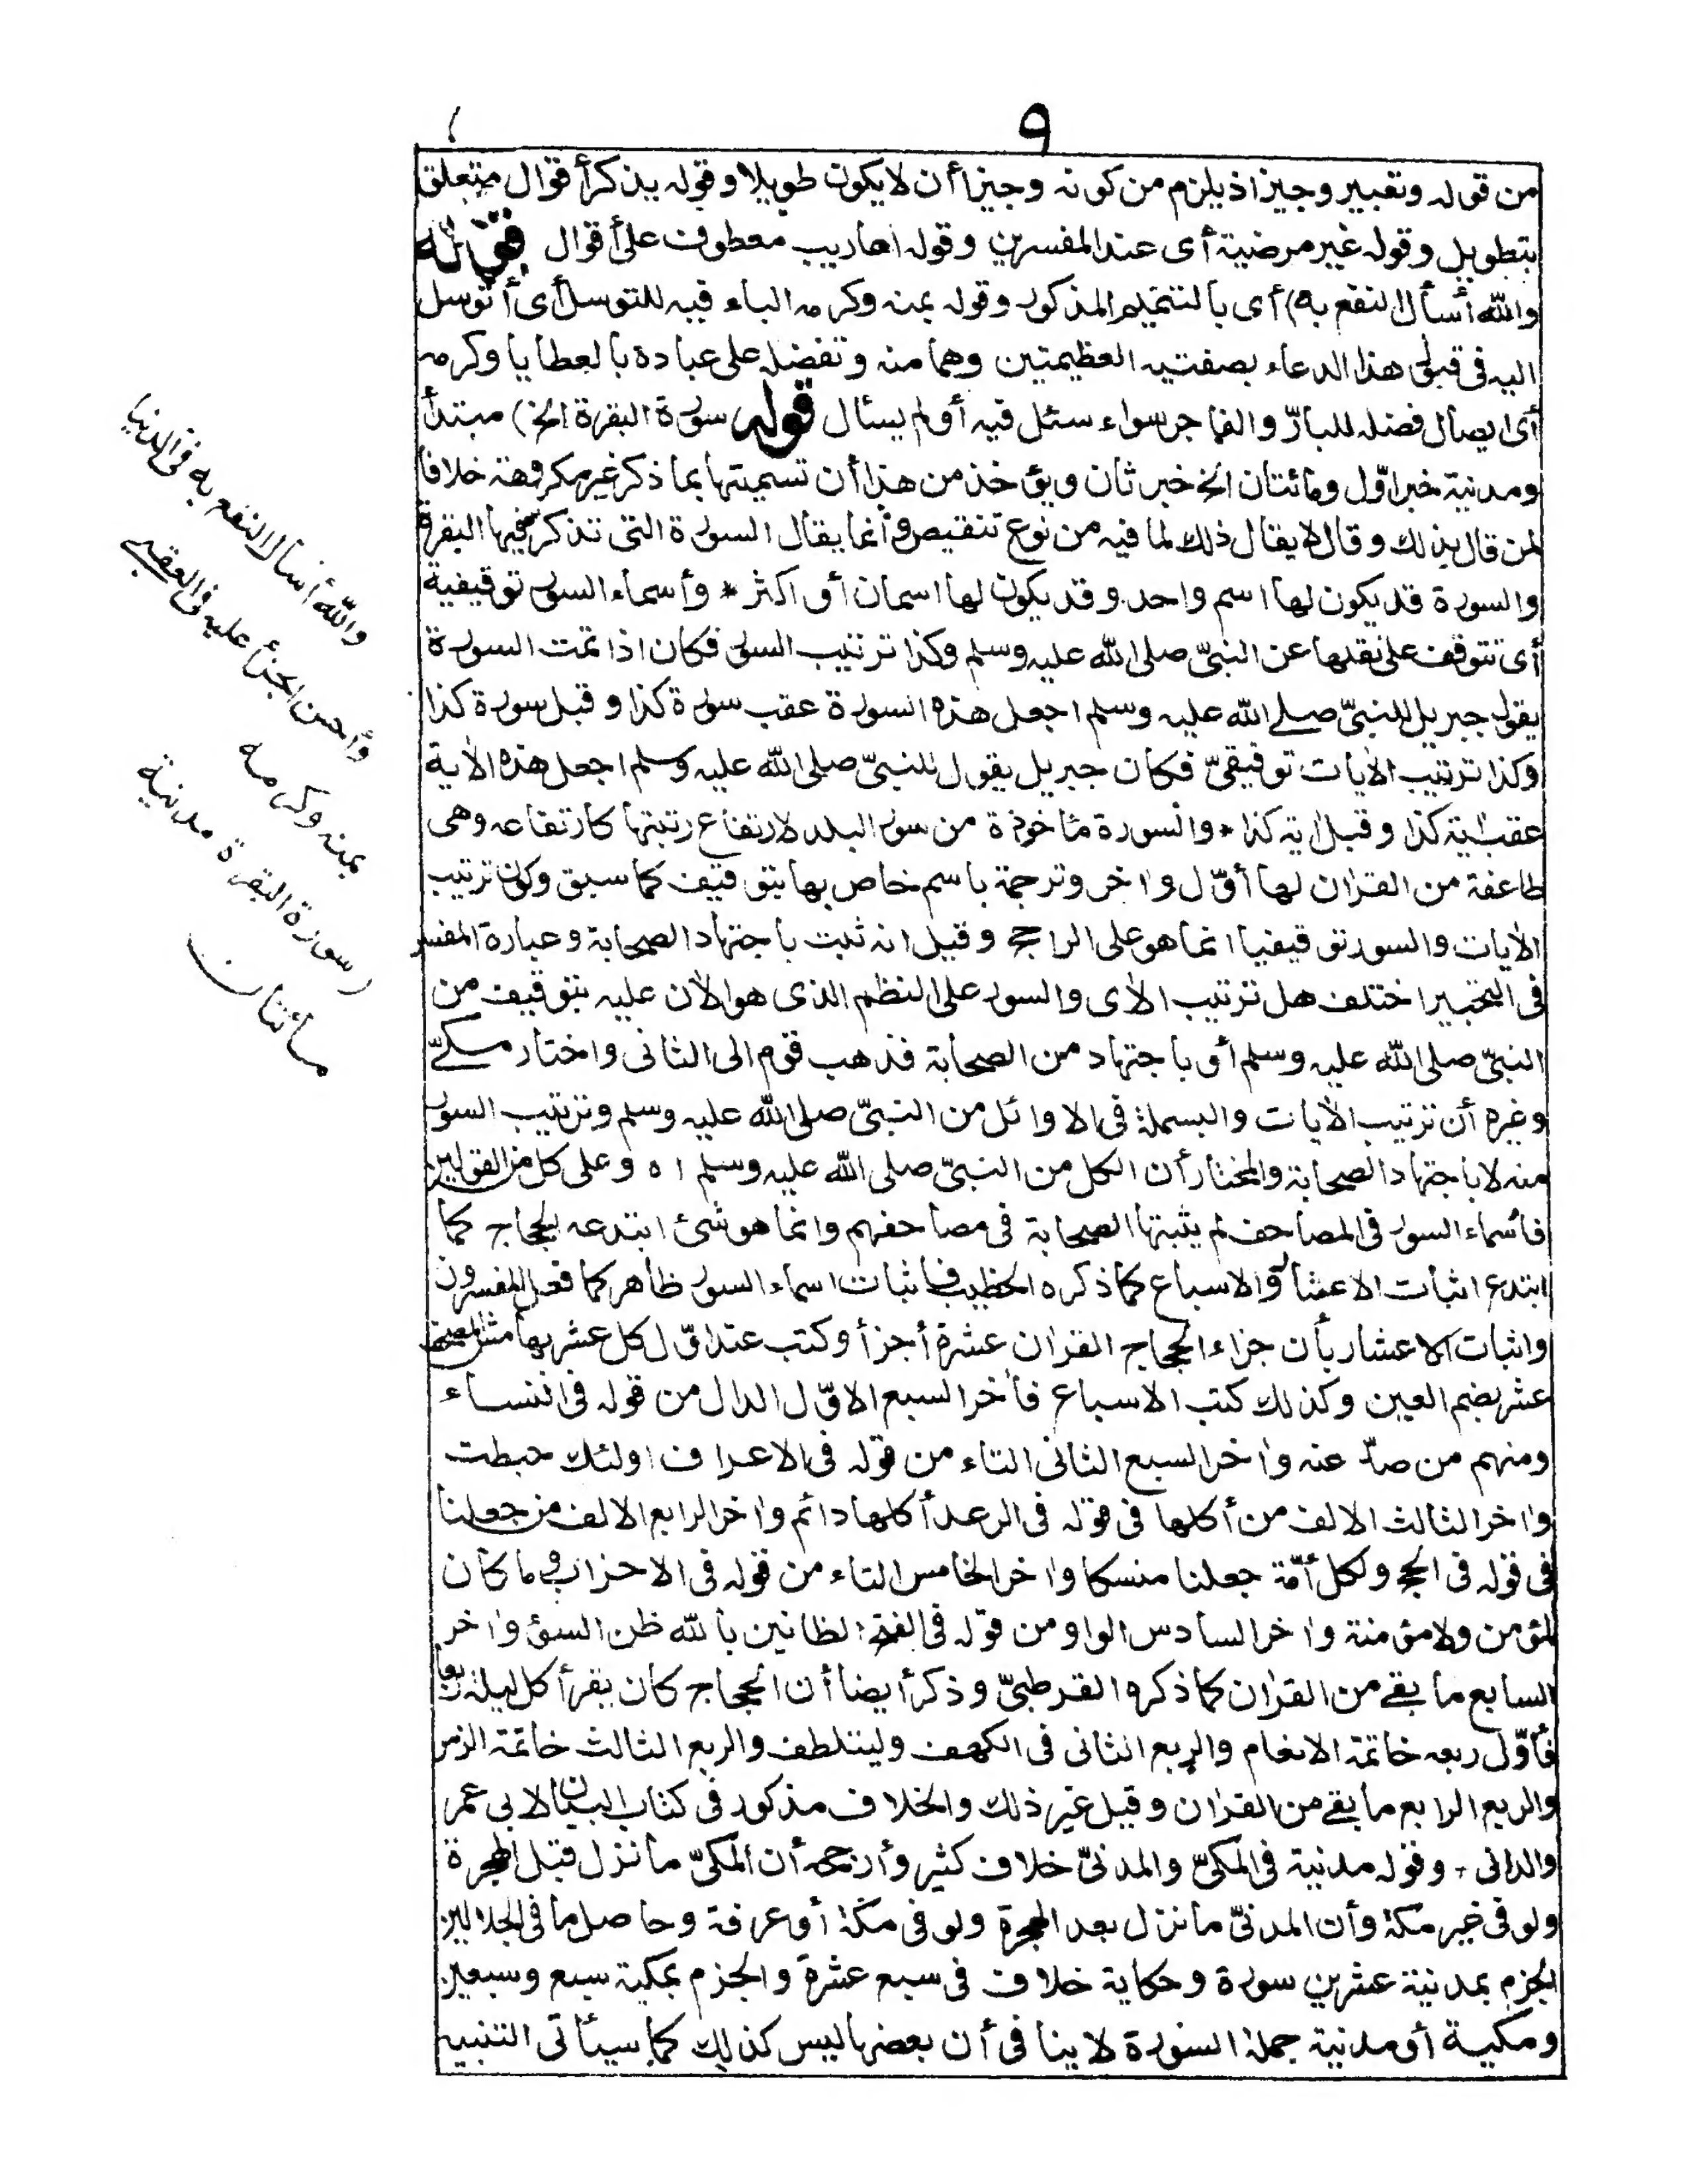 ٩
من قوله وتعبير وجيز اذ يلزم من كونه وجيزا أن لا يكون طويلا وقوله يذكر أقوال متعلق
بتطويل وقوله غير مرضية أى عند المفسرين وقوله اعاريب معطوف على أقوال قوله
والله أسأل النفع به) أى بالتتميم المذكور وقوله بمنه وكرمه الباء فيه للتوسل أى أتوسل
اليه فى قبول هذا الدعاء بصفتيه العظيمتين وهما منه وتفضله على عباده بالعطايا وكرمه
أى ايصال فضله للبارّ والفاجر سواء سئل فيه أو لم يسئال قوله سورة البقرة الخ) مبتدأ
ومدنية خبر اوّل ومائتان الخ خبر ثان ويؤخذ من هذا أن تسميتها بما ذكر غير مكروهة خلافا
لمن قال بذلك وقال لا يقال ذلك لما فيه من نوع تنقيص وأنما يقال السورة التى تذكر فيها البقرة
والسورة قد يكون لها اسم واحد وقد يكون لها اسمان أو اكثر * وأسماء السور توقيفية
أى تتوقف على نقلها عن النبىّ صلى الله عليه وسلم وكذا ترتيب السور فكان اذا تمت السورة
يقول جبريل للنبىّ صلى الله عليه وسلم اجعل هذه السورة عقب سورة كذا وقبل سورة كذا
وكذا ترتيب الأيات توقيفىّ فكان جبريل يقول للنبىّ صلى الله عليه وسلم اجعل هذه الأية
عقب اية كذا وقبل اية كذا * والسورة مأخوذة من سور البلد لارتفاع رتبتها كارتفاعه وهى
طائفة من القران لها أوّل واخر وترجمة باسم خاص بها بتوقيف كما سبق وكون ترتيب
الأيات والسور توقيفيا انما هو على الراجح وقيل انه ثبت باجتهاد الصحابة وعبارة المفسر
فى التحبير اختلف هل ترتيب الأى والسور على النظم الذى هو الأن عليه بتوقيف من
النبىّ صلى الله عليه وسلم أو باجتهاد من الصحابة فذهب قوم الى الثانى واختار مكىّ
وغيره أن ترتيب الأيات والبسملة فى الاوائل من النبىّ صلى الله عليه وسلم وترتيب السور
منه لا باجتهاد الصحابة والمختار أن الكل من النبىّ صلى الله عليه وسلم ا ه وعلى كل من القولين
فأسماء السور فى المصاحف لم يثبتها الصحابة فى مصاحفهم وانما هو شئ ابتدعه الحجاج كما
ابتدع اثبات الاعشار والاسباع كما ذكره الخطيب فاثبات اسماء السور ظاهر كما فعل المفسرون
واثبات الاعشار بأن جزاء الحجاج القران عشرة أجزأ وكتب عند اوّل كل عشر بهامش المصحف
عشر بضم العين وكذلك كتب الاسباع فأخر السبع الاوّل الدال من قوله فى النساء
ومنهم من صدّ عنه واخر السبع الثانى التاء من قوله فى الاعراف اولئك حبطت
واخر الثالث الالف من أكلها فى قوله فى الرعد أكلها دائم واخر الرابع الالف من جعلنا
فى قوله فى الحج ولكل أمّة جعلنا منسكا واخر الخامس التاء من قوله فى الاحزاب وما كان
لمؤمن ولا مؤمنة واخر السادس الواو من قوله فى الفتح الظانين بالله ظن السوء واخر
السابع ما بقى من القران كما ذكره القرطبىّ وذكر أيضا أن الحجاج كان يقرأ كل ليلة ربعا
فأوّل ربعه خاتمة الانعام والربع الثانى فى الكهف وليتلطف والربع الثالث خاتمة الزمر
والربع الرابع ما بقى من القران وقيل غير ذلك والخلاف مذكور فى كتاب البيان لابى عمر
والدانى * وقوله مدنية فى المكىّ والمدنىّ خلاف كثير وأرجحه أن المكىّ ما نزل قبل الهجرة
ولو فى غير مكة وأن المدنىّ ما نزل بعد الهجرة ولو فى مكة أو عرفة وحاصل ما فى الجلالين
الجزم بمدنية عشرين سورة وحكاية خلاف فى سبع عشرة والجزم بمكية سبع وسبعين
ومكية أو مدنية جملة السورة لا ينافى أن بعضها ليس كذلك كما سيأتى التنبيه
والله أسأل النفع به فى الدنيا
وأحسن الجزأ عليه فى العقبى
بمنه وكرمه
(سورة البقرة مدنية
مأئتان